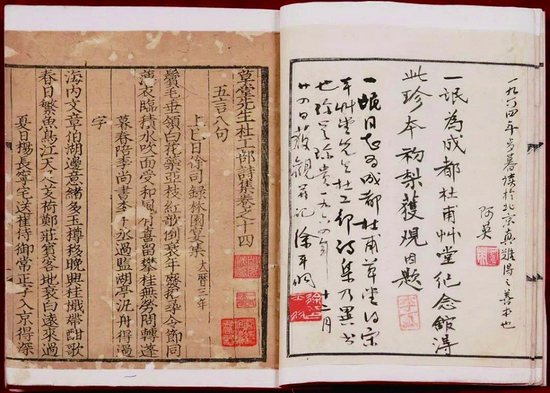 一九六四年歲暮讀於北京真難得之善本也
阿英
一氓為成都杜甫艸堂紀念館得
此珍本初梨獲觀因題
一氓同志為成都杜甫草堂得宋
本草堂先生杜工部詩集乃異書
也珍之珍之一九六四年十二月
廿四日獲觀并記 徐平羽
草堂先生杜工部詩集卷之十四
五言八句
上巳日徐司録林園宴集 大曆三年
鬢毛垂領白花蘂亞枝紅欹倒衰年廢招尋令節同
薄衣臨積水吹面受和風有喜留攀桂無勞問轉蓬
暮春陪李尚書李中丞過鄭監湖亭汎舟得過
字
海内文章伯湖邊意緒多玉樽移晚興桂檝帶酣歌
春日繁魚鳥江天足芰荷鄭莊賓客地衰白遠來過
夏日楊長寧宅送崔侍御常正字入京得深